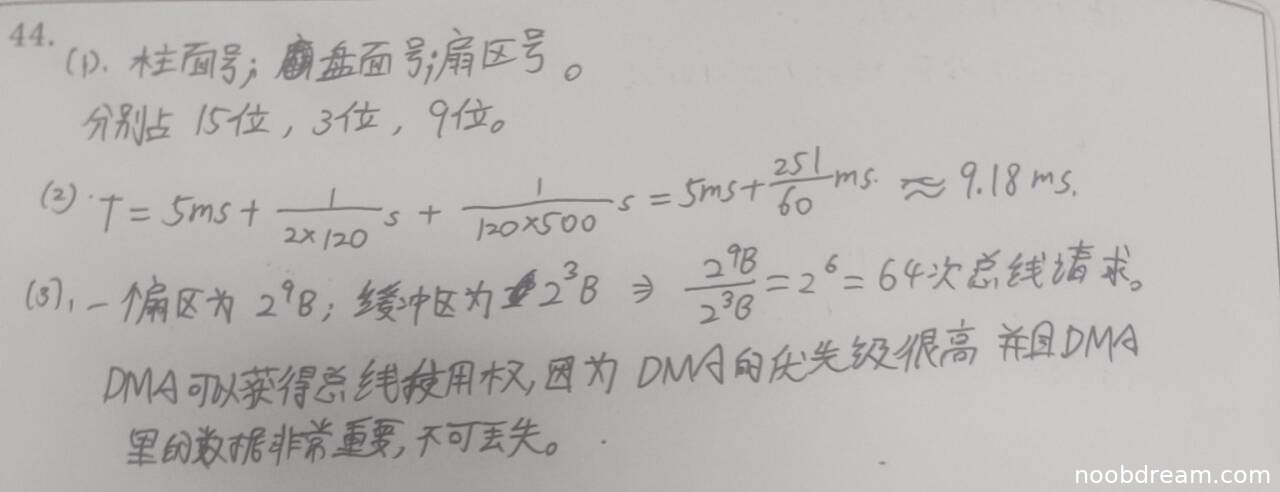 44.
(1). 柱面号; 盘面号;扇区号。
分别占 15位, 3位, 9位。
(2). T = 5ms + \frac{1}{2×120}s + \frac{1}{120×500}s = 5ms + \frac{251}{60}ms. ≈ 9.18 ms.
(3), 一个扇区为 2^9B; 缓冲区为 2^3B ⇒ \frac{2^9B}{2^3B} = 2^6 = 64次总线请求。
DMA可以获得总线使用权,因为 DMA的优先级很高 并且DMA
里的数据非常重要,不可丢失。
noobdream.com